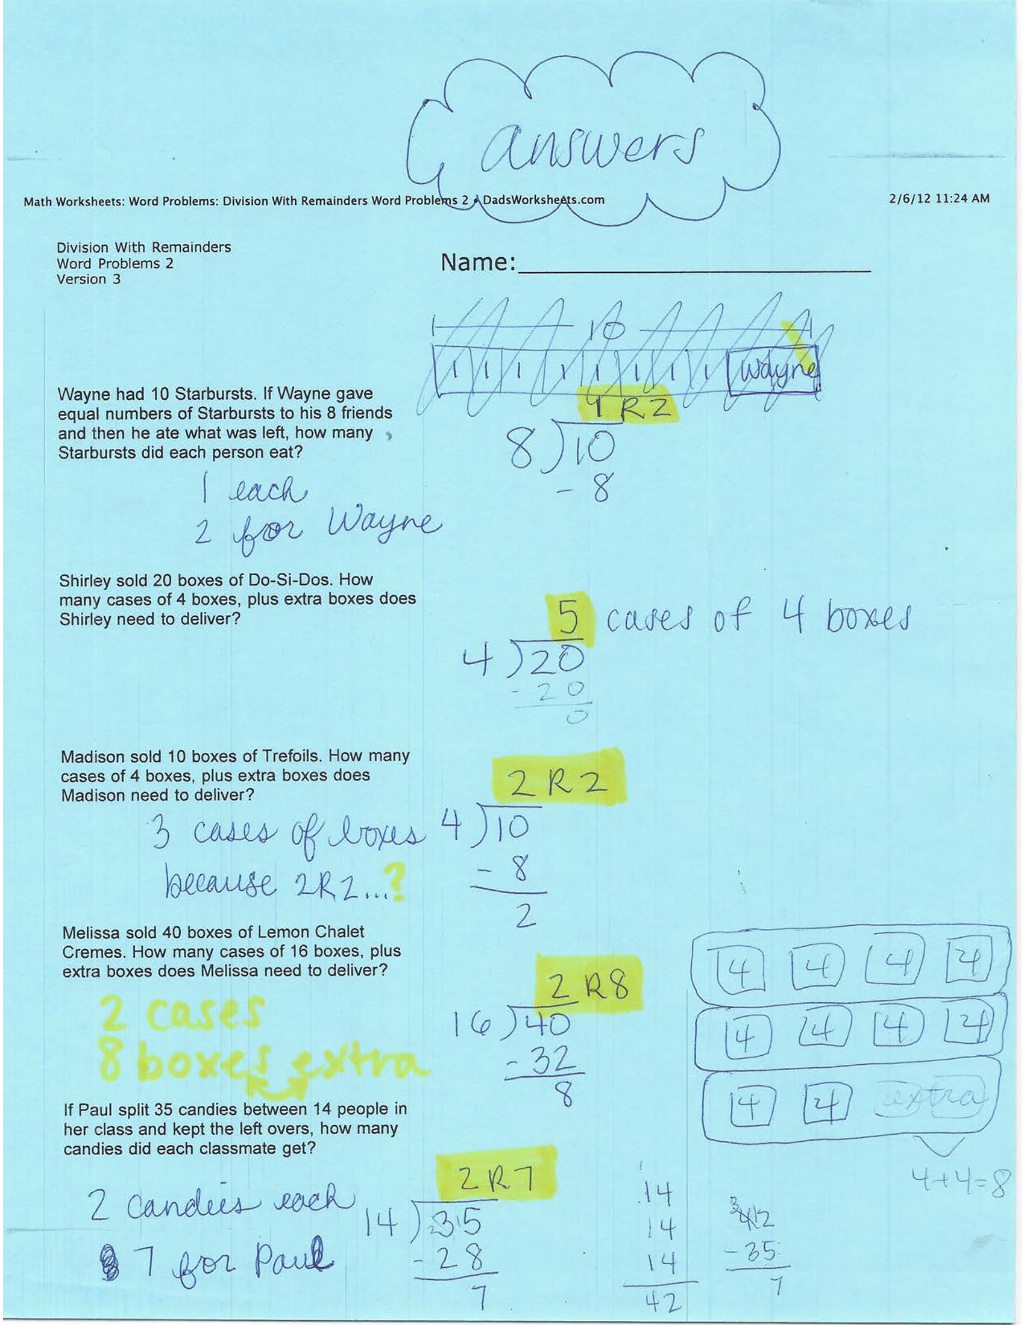 answers
Math Worksheets: Word Problems: Division With Remainders Word Problems 2 • DadsWorksheets.com
2/6/12 11:24 AM
Division With Remainders
Word Problems 2
Version 3
Name:
10
1 1 1 1 1 1 1 1 Wayne
Wayne had 10 Starbursts. If Wayne gave
equal numbers of Starbursts to his 8 friends
and then he ate what was left, how many
Starbursts did each person eat?
1 R2
8)10
- 8
1 each
2 for Wayne
Shirley sold 20 boxes of Do-Si-Dos. How
many cases of 4 boxes, plus extra boxes does
Shirley need to deliver?
5 cases of 4 boxes
4)20
-20
0
Madison sold 10 boxes of Trefoils. How many
cases of 4 boxes, plus extra boxes does
Madison need to deliver?
2 R2
4)10
- 8
2
3 cases of boxes
because 2R2...?
Melissa sold 40 boxes of Lemon Chalet
Cremes. How many cases of 16 boxes, plus
extra boxes does Melissa need to deliver?
2 R8
16)40
-32
8
2 cases
8 boxes extra
4 4 4 4
4 4 4 4
4 4 extra
4+4=8
If Paul split 35 candies between 14 people in
her class and kept the left overs, how many
candies did each classmate get?
2 R7
14)35
-28
7
2 candies each
7 for Paul
14
14
14
42
3 412
-35
7